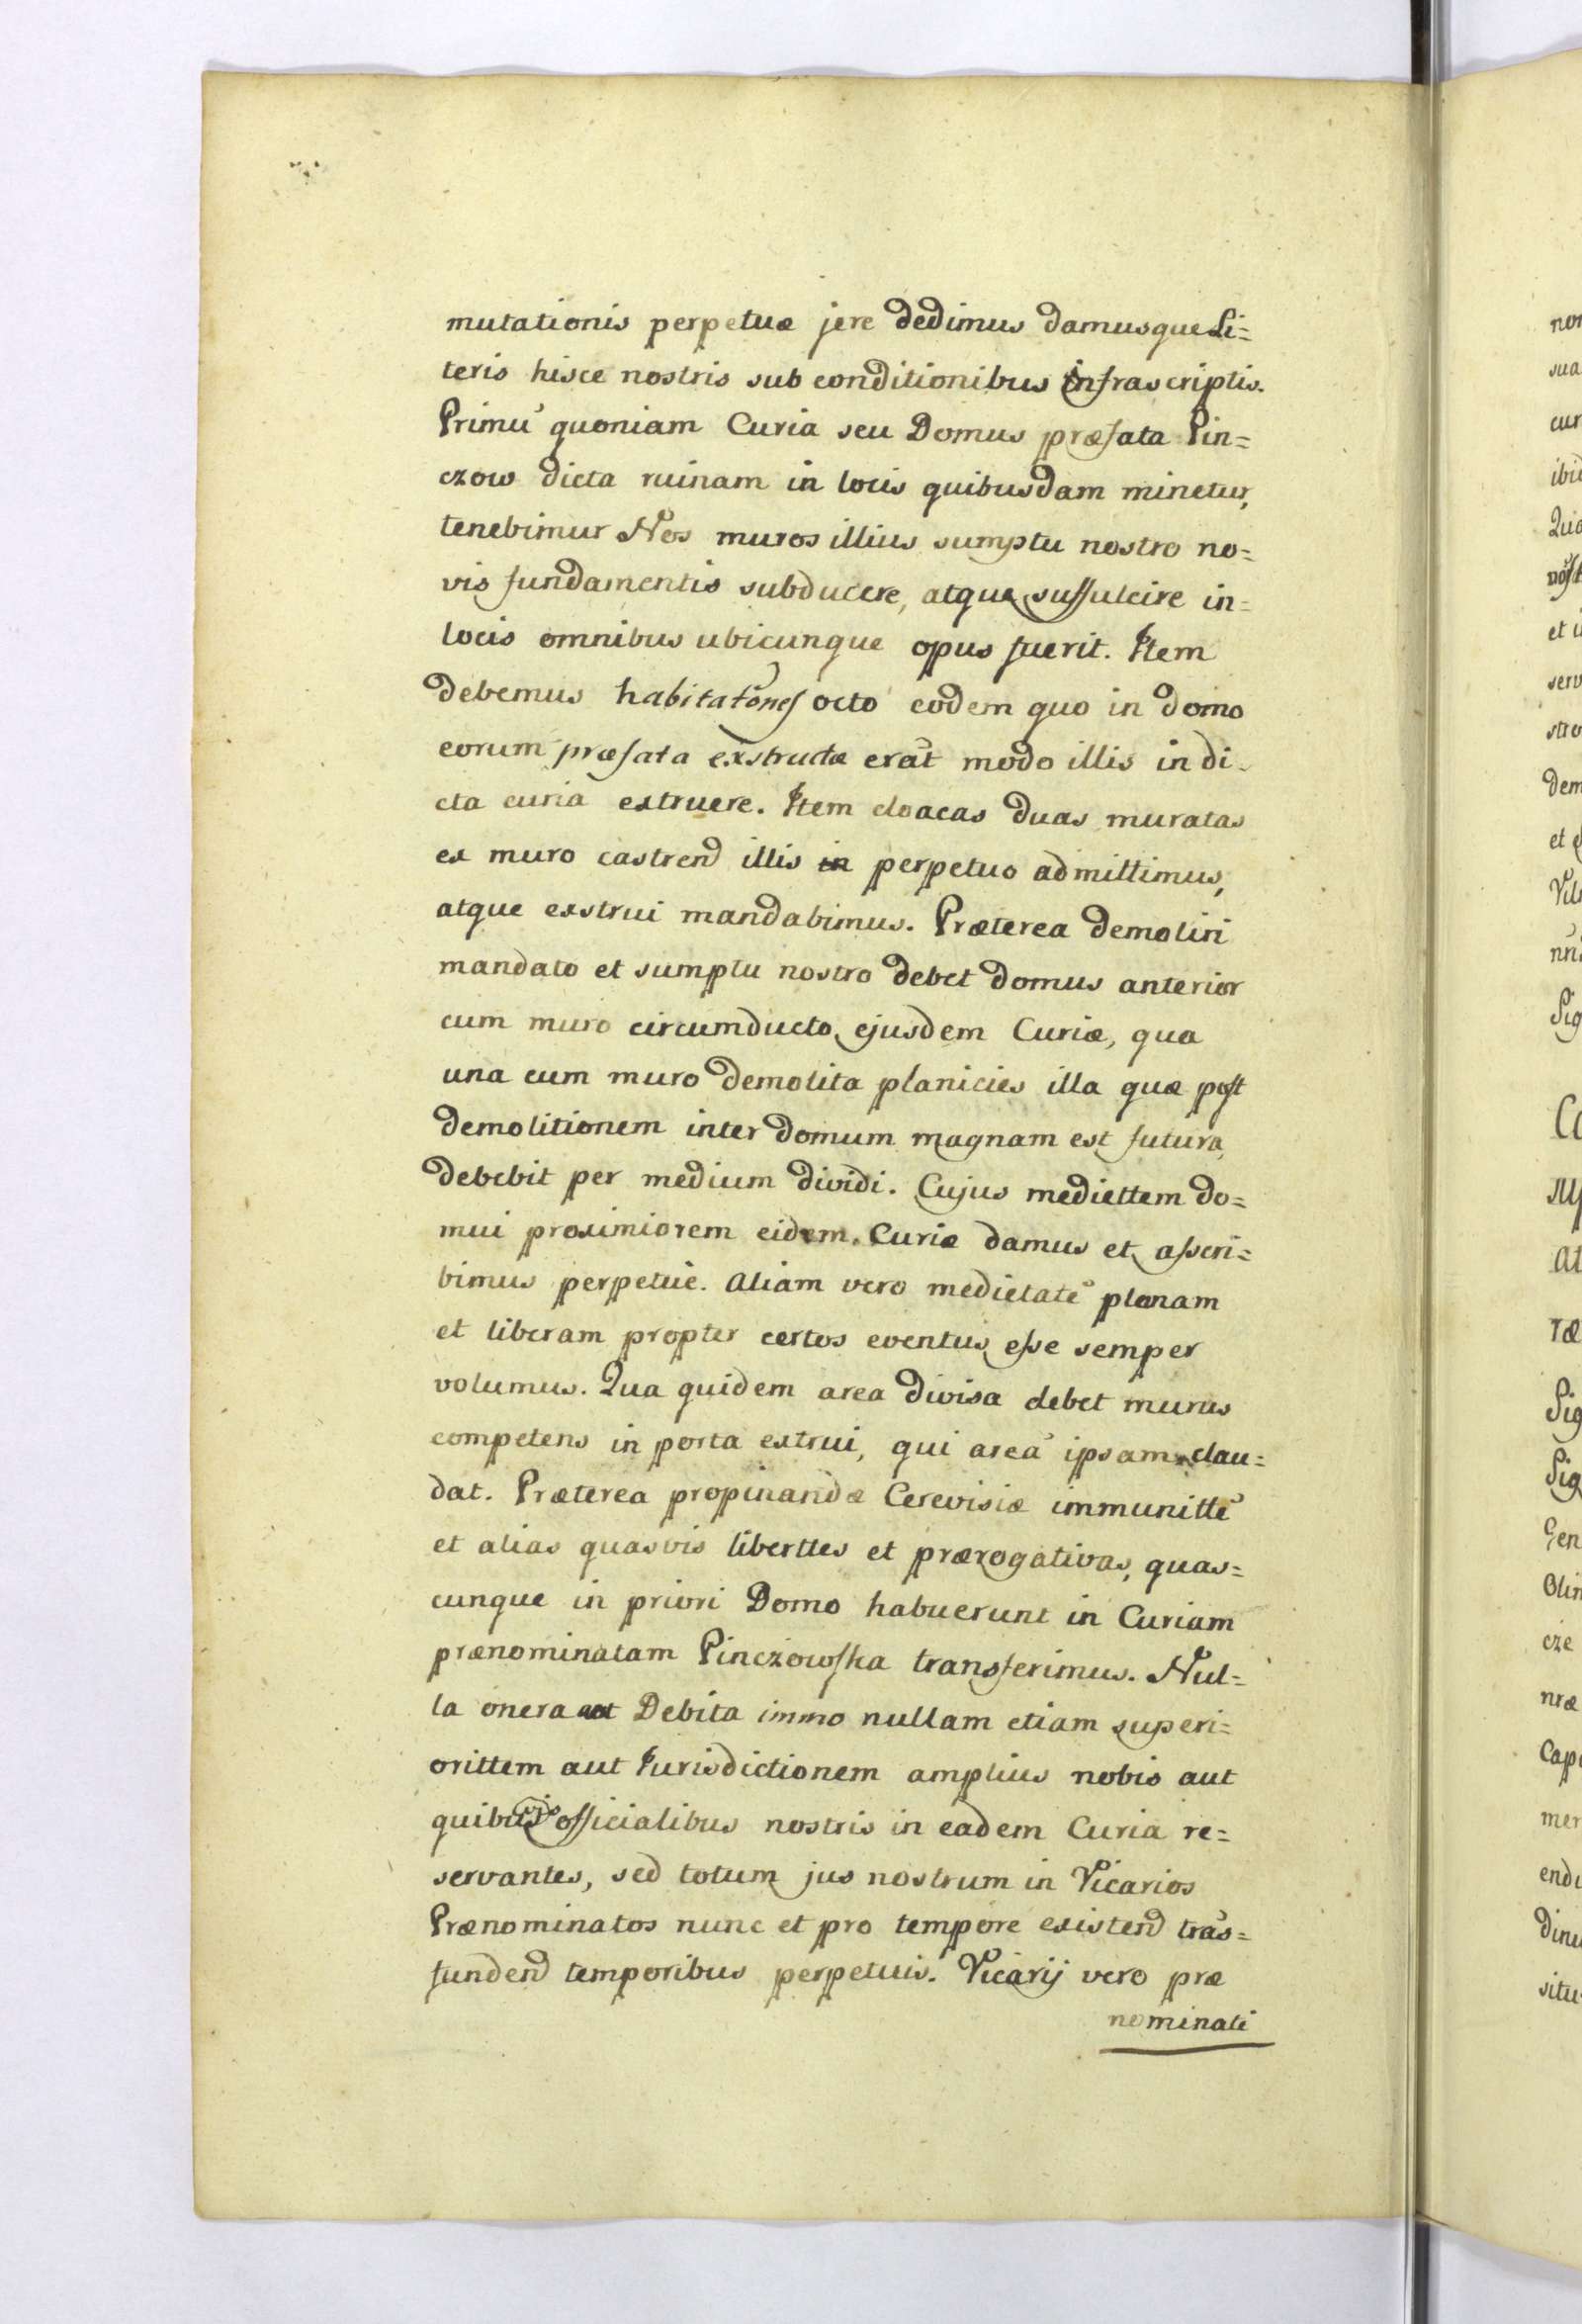 mutationis perpetuæ jere dedimus damusque Li=
teris hisce nostris sub conditionibus infrascriptis.
Primũ quoniam Curia seu Domus præfata Pin=
czow dicta ruinam in locis quibusdam minetur,
tenebimur Nos muros illius sumptu nostro no=
vis fundamentis subducere, atque suffulcire in=
locis omnibus ubicunque opus fuerit. Item
debemus habitatões octo eodem quo in domo
eorum præfata exstructæ erãt modo illis in di-
cta curia extruere. Item cloacas duas muratas
ex muro castrend illis in perpetuo admittimus,
atque exstrui mandabimus. Præterea demoliri
mandato et sumptu nostro debet domus anterior
cum muro circumducto ejusdem Curiæ, qua
una cum muro demolita planicies illa quæ post
demolitionem inter domum magnam est futura,
debebit per medium dividi. Cujus mediettem do=
mui proximiorem eidem. Curiæ damus et asscri=
bimus perpetue. Aliam vero medietatẽ planam
et liberam propter certos eventus esse semper
volumus. Qua quidem area divisa debet murus
competens in porta extrui, qui areã ipsam clau=
dat. Præterea propinandæ Cerevisiæ immunittẽ
et alias quasvis liberttes et prærogativas, quas=
cunque in priori Domo habuerunt in Curiam
prænominatam Pinczowska transferimus. Nul=
la onera aut Debita immo nullam etiam superi=
orittem aut Jurisdictionem amplius nobis aut
quibusvis officialibus nostris in eadem Curia re=
servantes, sed totum jus nostrum in Vicarios
Prænominatos nunc et pro tempore existend trãs=
fundend temporibus perpetuis. Vicarij vero præ
nominati